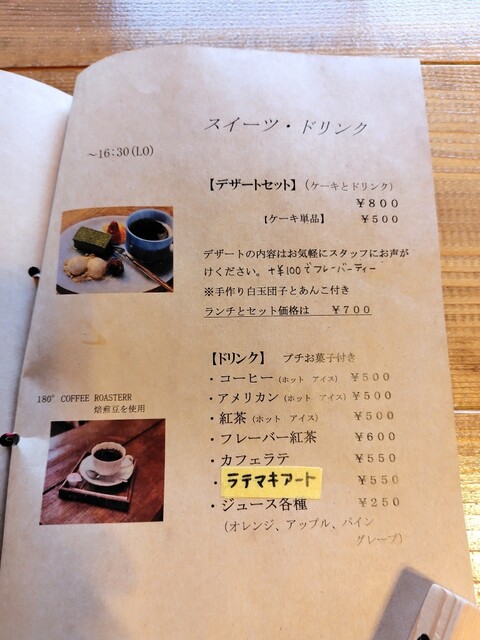 スイーツ・ドリンク
～16:30(LO)
【デザートセット】（ケーキとドリンク）
￥800
【ケーキ単品】 ￥500
デザートの内容はお気軽にスタッフにお声が
けください。+¥100でフレーバーティー
※手作り白玉団子とあんこ付き
ランチとセット価格は ￥700
【ドリンク】 プチお菓子付き
・コーヒー（ホット アイス） ￥500
・アメリカン（ホット アイス） ￥500
・紅茶（ホット アイス） ￥500
・フレーバー紅茶 ￥600
・カフェラテ ￥550
・ラテマキアート ￥550
・ジュース各種 ￥250
（オレンジ、アップル、パイン
グレープ）
180° COFFEE ROASTERR
焙煎豆を使用